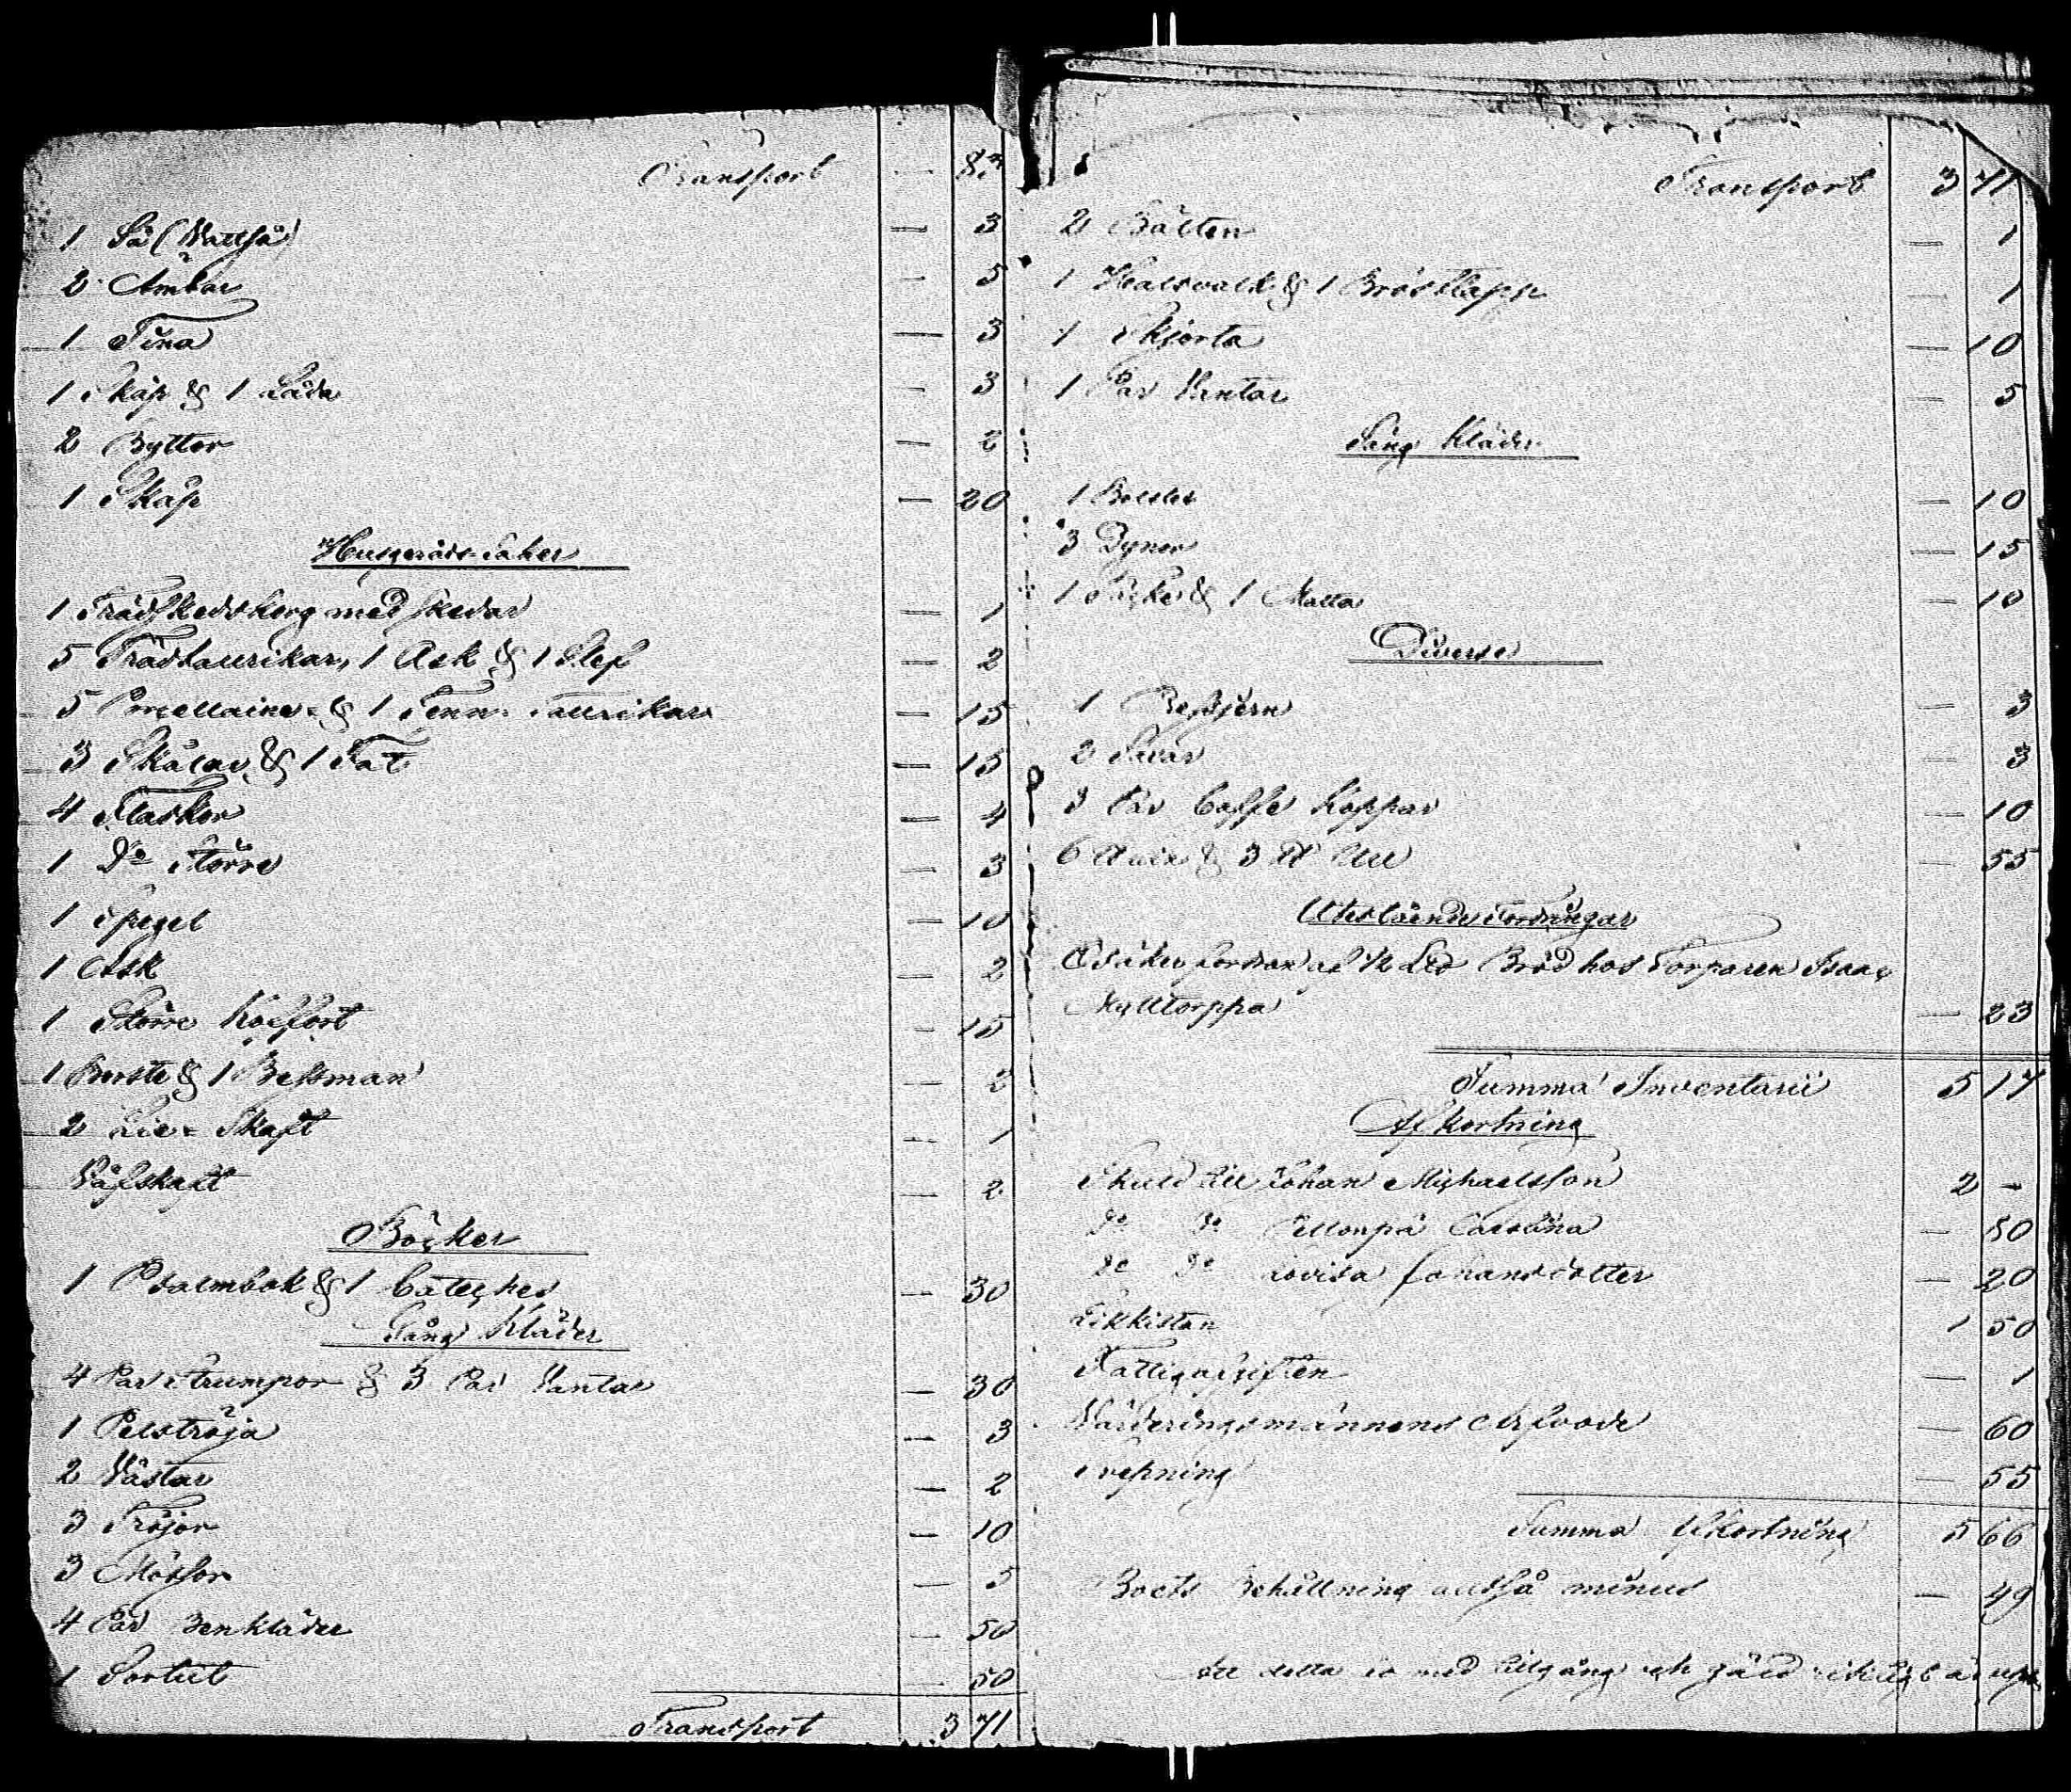 Transport — 83
1 Så (Wattså) — 3
2 Ämbar — 5
1 Tina — 3
1 Skåp & 1 Låda — 3
2 Byttor — 2
1 Skåp — 20
Husgeråds Saker
1 Trädskedskorg med skedar — 1
5 Trädtallrikar, 1 Ask & 1 Slef — 2
5 Porcellaine & 1 Tenn tallrikar — 15
3 Skålar & 1 Fat — 15
4 Flaskor — 4
1 D:o Större — 3
1 Spegel — 10
1 Ask — 2
1 Större Koffort — 15
1 Borste & 1 Bessman — 2
2 Lie Skaft — 1
Väfskaft — 2
Böcker
1 Psalmbok & 1 Cateches — 30
Gång Kläder
4 Par Strumpor & 3 Par Vantar — 30
1 Pelströja — 3
2 Västar — 2
3 Tröjor — 10
3 Mössor — 5
4 Par Benkläder — 50
1 Sortut — 50
Transport 3 71
Transport 3 71
2 Bälten — 1
1 & 1 Bröstlapp — 1
1 Skjorta — 10
1 Par Vantar — 5
Säng Kläder
1 Bolster — 10
3 Dynor — 15
1 Täcke & 1 Matta — 10
Diverse
1 — 3
2 — 3
3 Par Caffe Koppar — 10
6 & 3 Ull — 55
Utestående Fordringar
Osäker fordran af 1/2 Bröd hos Torparen Isaac
Mylltorppa — 23
Summa Inventarii 5 17
Afkortning
Skuld till Johan Michaelsson 2 —
D:o D:o Carolina — 50
D:o D:o Lovisa Johansdotter — 20
Likkistan 1 50
Fattigafgiften — 1
Värderingsmännens Arfvode — 60
— 55
Summa Afkortning 5 66
Boets Behållning alltså minus — 49
Att detta är med tillgång och gäld riktigt